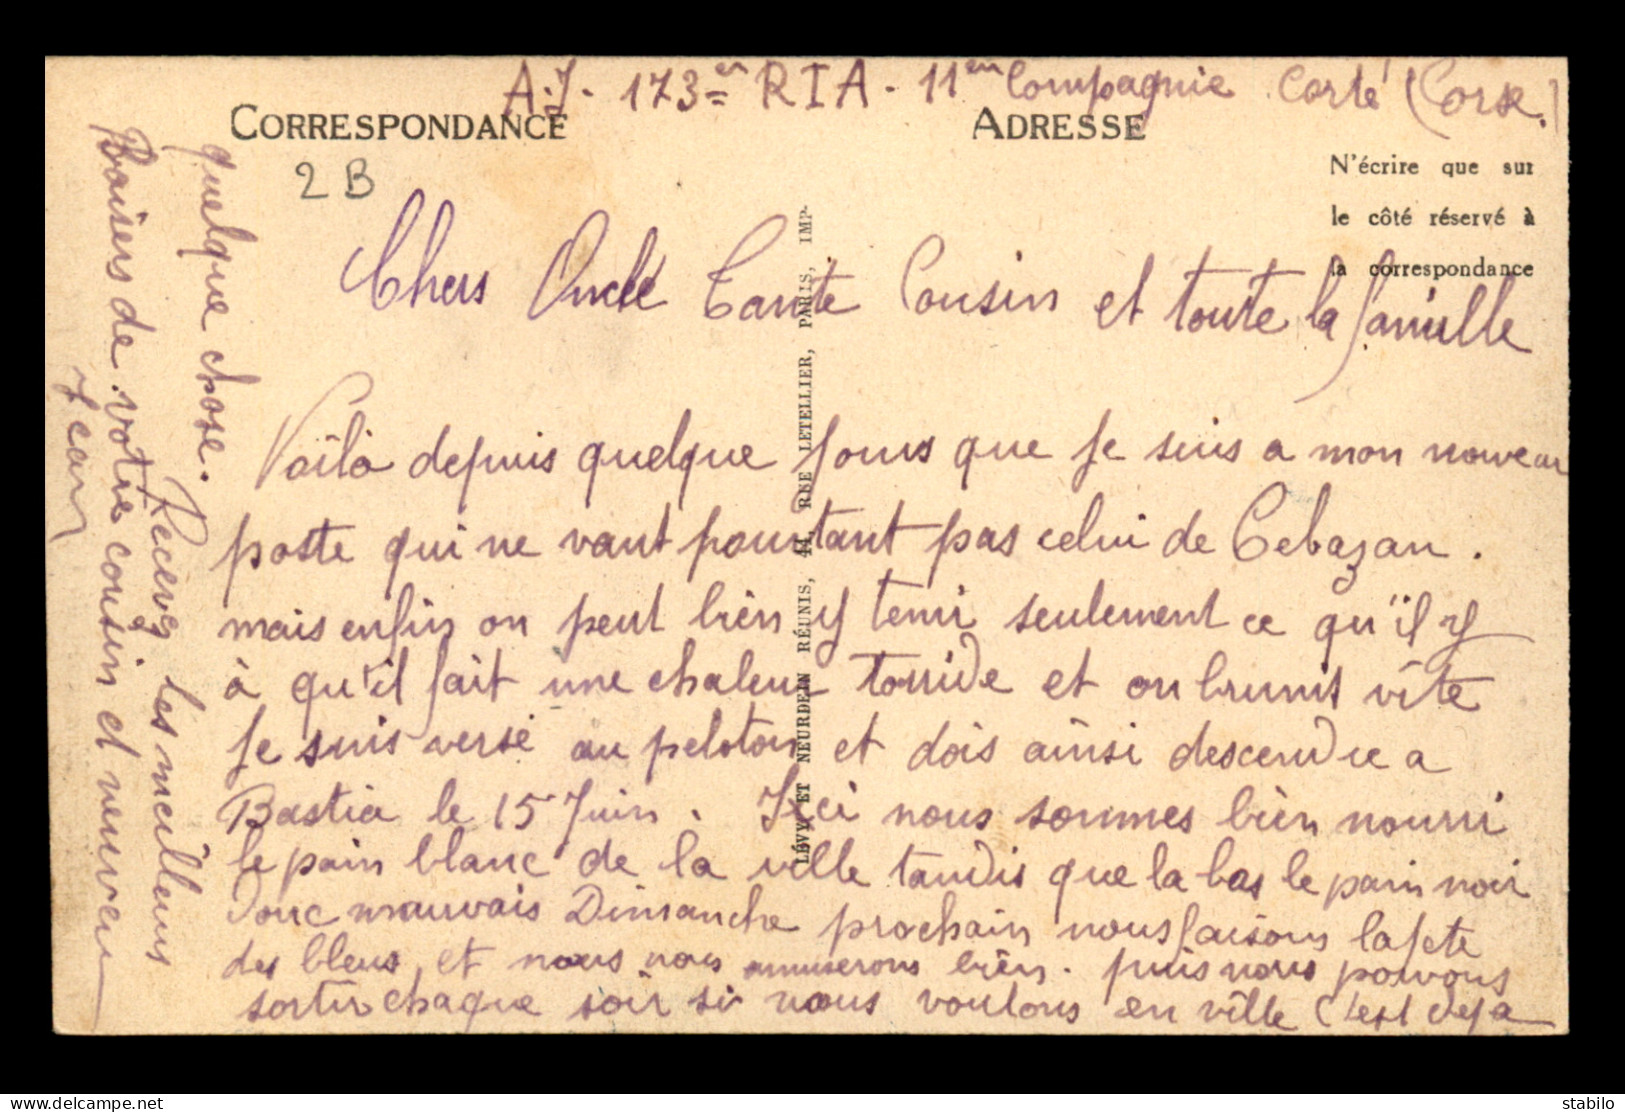 A.J. 173em RIA - 11em Compagnie Corté (Corse.)
CORRESPONDANCE
ADRESSE
2B
N'écrire que sur
le côté réservé à
la correspondance
Chers Oncle Tante Cousin et toute la famille
Voilà depuis quelque jours que je suis a mon nouveau
poste qui ne vaut pourtant pas celui de Cebazan.
mais enfin on peut bien y tenir seulement ce qu'il y
à qu'il fait une chaleur torride et on brunis vite
Je suis versé au peloton et dois ainsi descendre a
Bastia le 15 Juin. Ici nous sommes bien nourri
le pain blanc de la ville tandis que la bas le pain noir
donc mauvais Dimanche prochain nous faisons la fete
des bleus, et nous nous amuserons bien. puis nous pouvons
sortir chaque soir si nous voulons en ville C'est deja
quelque chose.
Recevez les meilleurs
Baisers de votre cousin et neuveu
Jean
LÉVY ET NEURDEIN RÉUNIS, 44, RUE LETELLIER, PARIS, IMP.
stabilo